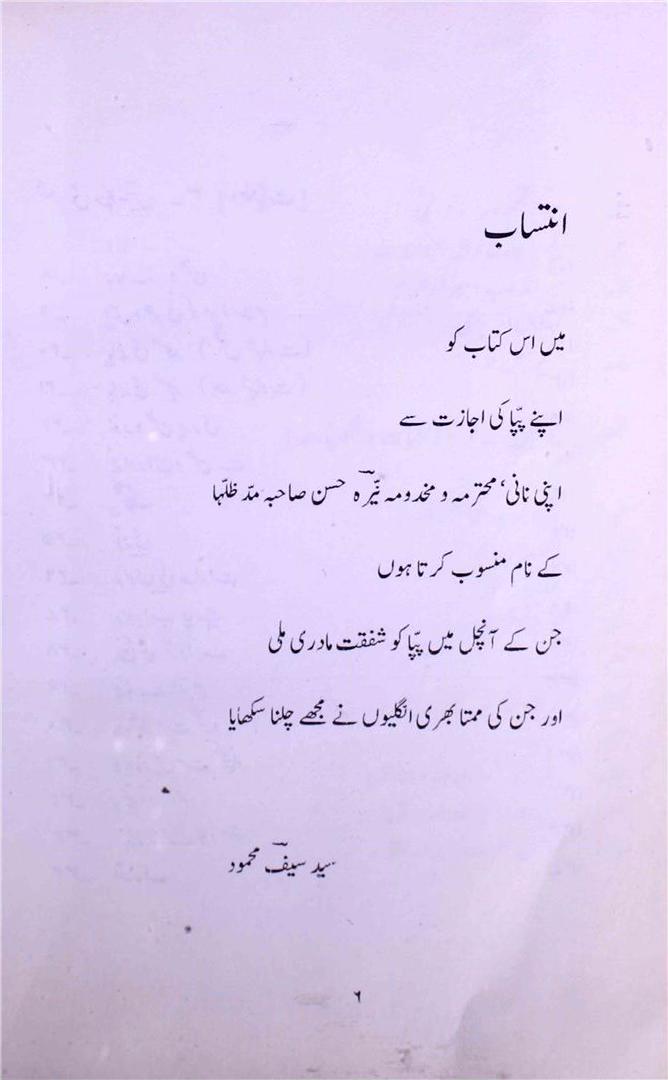 انتساب
میں اس کتاب کو
اپنے پپّا کی اجازت سے
اپنی نانی، محترمہ و مخدومہ نیّرہؔ حسن صاحبہ مدّ ظلّہا
کے نام منسوب کرتا ہوں
جن کے آنچل میں پپّا کو شفقت مادری ملی
اور جن کی ممتا بھری انگلیوں نے مجھے چلنا سکھایا
سید سیفؔ محمود
۶